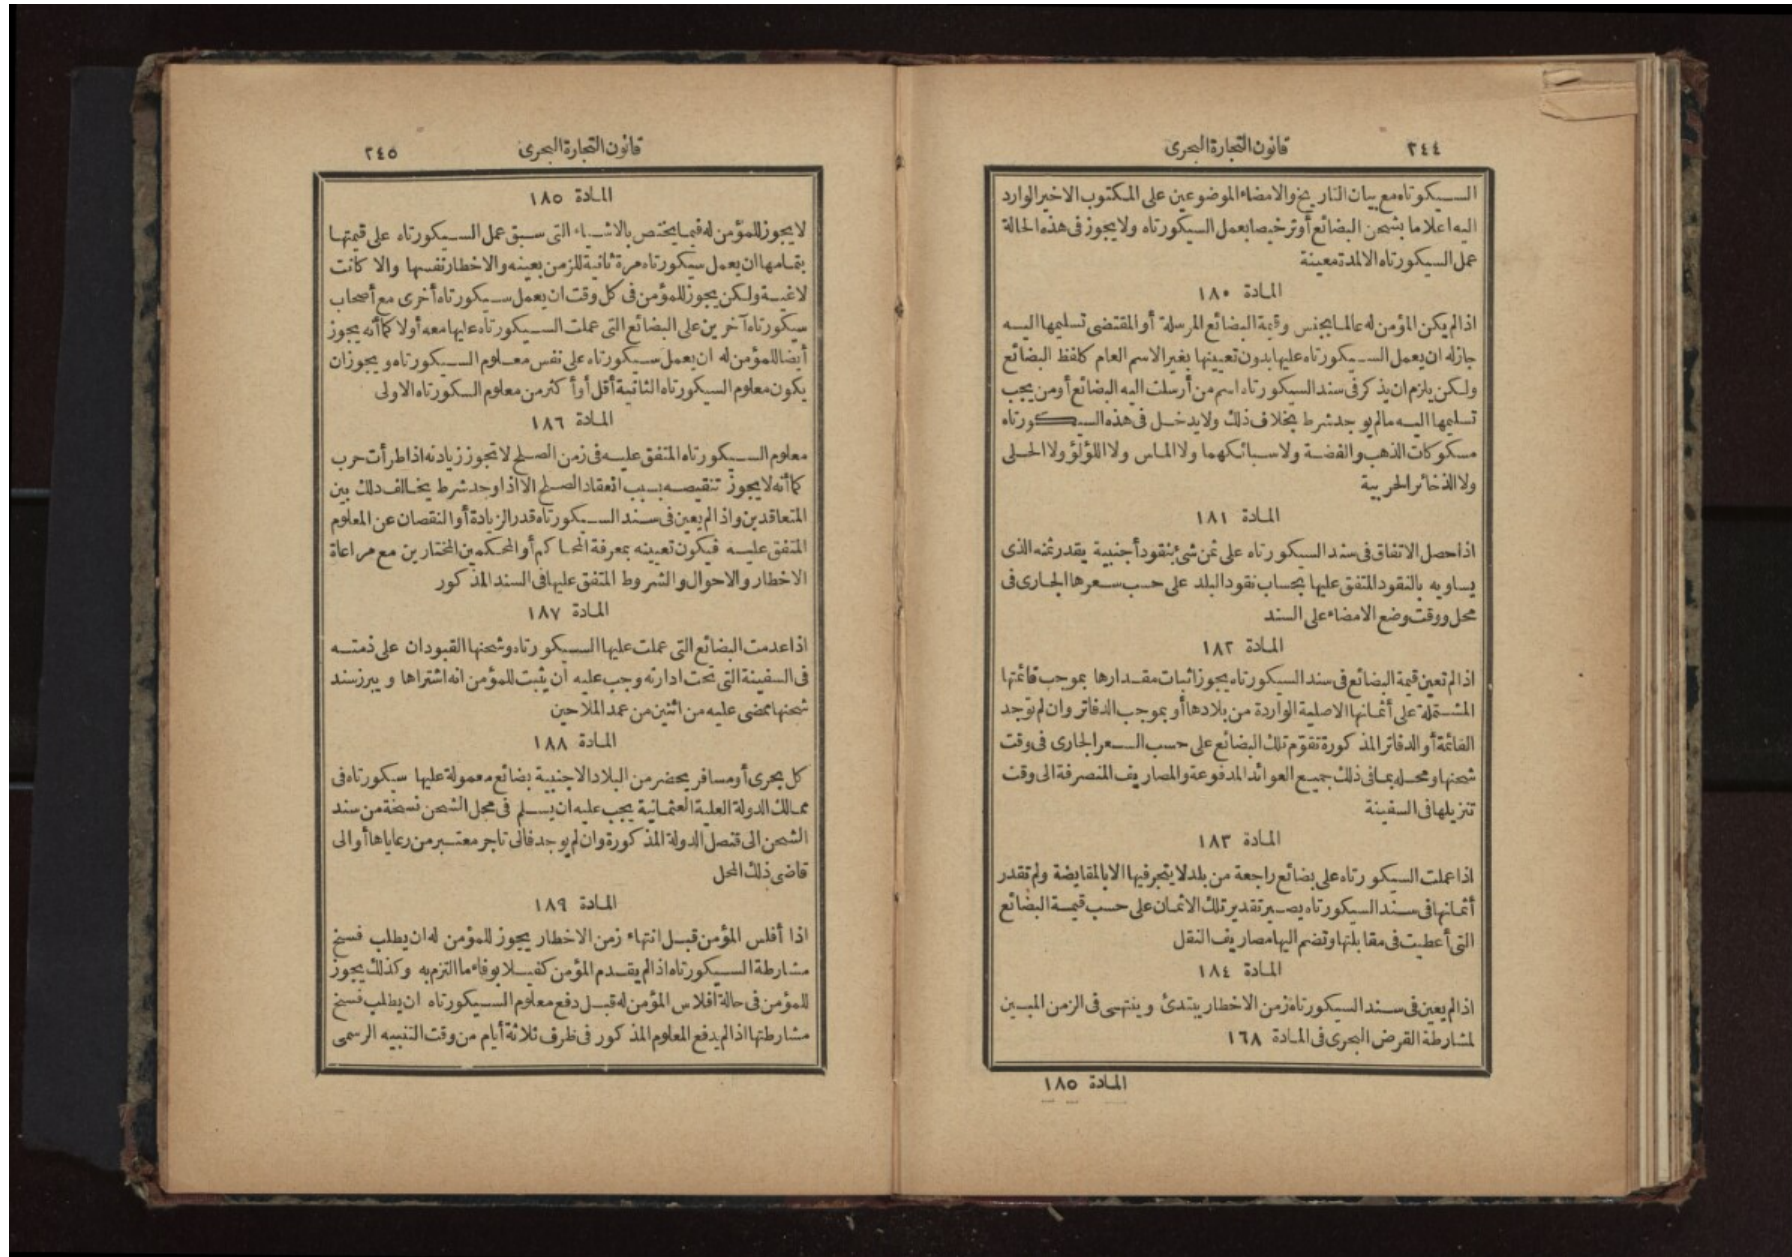 ٢٤٤
قانون التجارة البحرى
السيكورتاه مع بيان التاريخ والامضاء الموضوعين على المكتوب الاخير الوارد
اليه اعلاما بشحن البضائع أوترخيصا بعمل السيكورتاه ولا يجوز فى هذه الحالة
عمل السيكورتاه الا لمدة معينة
المادة ١٨٠
اذا لم يكن المؤمن له عالما بجنس وقيمة البضائع المرسلة أو المقتضى تسليمها اليه
جازله ان يعمل السيكورتاه عليها بدون تعيينها بغير الاسم العام كلفظ البضائع
ولكن يلزم ان يذكر فى سند السيكورتاه اسم من أرسلت اليه البضائع أومن يجب
تسليمها اليه مالم يوجد شرط بخلاف ذلك ولا يدخل فى هذه السيكورتاه
مسكوكات الذهب والفضة ولا سبائكهما ولا الماس ولا اللؤلؤ ولا الحلى
ولا الذخائر الحربية
المادة ١٨١
اذا حصل الاتفاق فى سند السيكورتاه على ثمن شئ بنقود أجنبية يقدر ثمنه الذى
يساويه بالنقود المتفق عليها بحساب نقود البلد على حسب سعرها الجارى فى
محل ووقت وضع الامضاء على السند
المادة ١٨٢
اذا لم تعين قيمة البضائع فى سند السيكورتاه يجوز اثبات مقدارها بموجب قائمتها
المشتملة على أثمانها الاصلية الواردة من بلادها أو بموجب الدفاتر وان لم توجد
القائمة أو الدفاتر المذكورة تقوّم تلك البضائع على حسب السعر الجارى فى وقت
شحنها ومحله بما فى ذلك جميع العوائد المدفوعة والمصاريف المنصرفة الى وقت
تنزيلها فى السفينة
المادة ١٨٣
اذا عملت السيكورتاه على بضائع راجعة من بلد لا يتجر فيها الا بالمقايضة ولم تقدر
أثمانها فى سند السيكورتاه يصير تقدير تلك الاثمان على حسب قيمة البضائع
التى أعطيت فى مقابلتها وتضم اليها مصاريف النقل
المادة ١٨٤
اذا لم يعين فى سند السيكورتاه زمن الاخطار يبتدئ وينتهى فى الزمن المبين
لمشارطة القرض البحرى فى المادة ١٦٨
المادة ١٨٥
قانون التجارة البحرى
٢٤٥
المادة ١٨٥
لا يجوز للمؤمن له فيما يختص بالاشياء التى سبق عمل السيكورتاه على قيمتها
بتمامها ان يعمل سيكورتاه مرة ثانية للزمن بعينه والاخطار نفسها والا كانت
لاغية ولكن يجوز للمؤمن فى كل وقت ان يعمل سيكورتاه أخرى مع أصحاب
سيكورتاه آخرين على البضائع التى عملت السيكورتاه عليها معه أولا كما أنه يجوز
أيضا للمؤمن له ان يعمل سيكورتاه على نفس معلوم السيكورتاه ويجوز ان
يكون معلوم السيكورتاه الثانية أقل أو أكثر من معلوم السكورتاه الاولى
المادة ١٨٦
معلوم السيكورتاه المتفق عليه فى زمن الصلح لا تجوز زيادته اذا طرأت حرب
كما أنه لا يجوز تنقيصه بسبب انعقاد الصلح الا اذا وجد شرط يخالف ذلك بين
المتعاقدين واذا لم يعين فى سند السيكورتاه قدر الزيادة أو النقصان عن المعلوم
المتفق عليه فيكون تعيينه بمعرفة المحاكم أو المحكمين المختارين مع مراعاة
الاخطار والاحوال والشروط المتفق عليها فى السند المذكور
المادة ١٨٧
اذا عدمت البضائع التى عملت عليها السيكورتاه وشحنها القبودان على ذمته
فى السفينة التى تحت ادارته وجب عليه أن يثبت للمؤمن انه اشتراها ويبرز سند
شحنها ممضى عليه من اثنين من عمد الملاحين
المادة ١٨٨
كل بحرى أو مسافر يحضر من البلاد الاجنبية بضائع معمولة عليها سيكورتاه فى
ممالك الدولة العلية العثمانية يجب عليه ان يسلم فى محل الشحن نسخة من سند
الشحن الى قنصل الدولة المذكورة وان لم يوجد فالى تاجر معتبر من رعاياها أو الى
قاضى ذلك المحل
المادة ١٨٩
اذا أفلس المؤمن قبل انتهاء زمن الاخطار يجوز للمؤمن له ان يطلب فسخ
مشارطة السيكورتاه اذا لم يقدم المؤمن كفيلا بوفاء ما التزم به وكذلك يجوز
للمؤمن فى حالة افلاس المؤمن له قبل دفع معلوم السيكورتاه ان يطلب فسخ
مشارطتها اذا لم يدفع المعلوم المذكور فى ظرف ثلاثة أيام من وقت التنبيه الرسمى